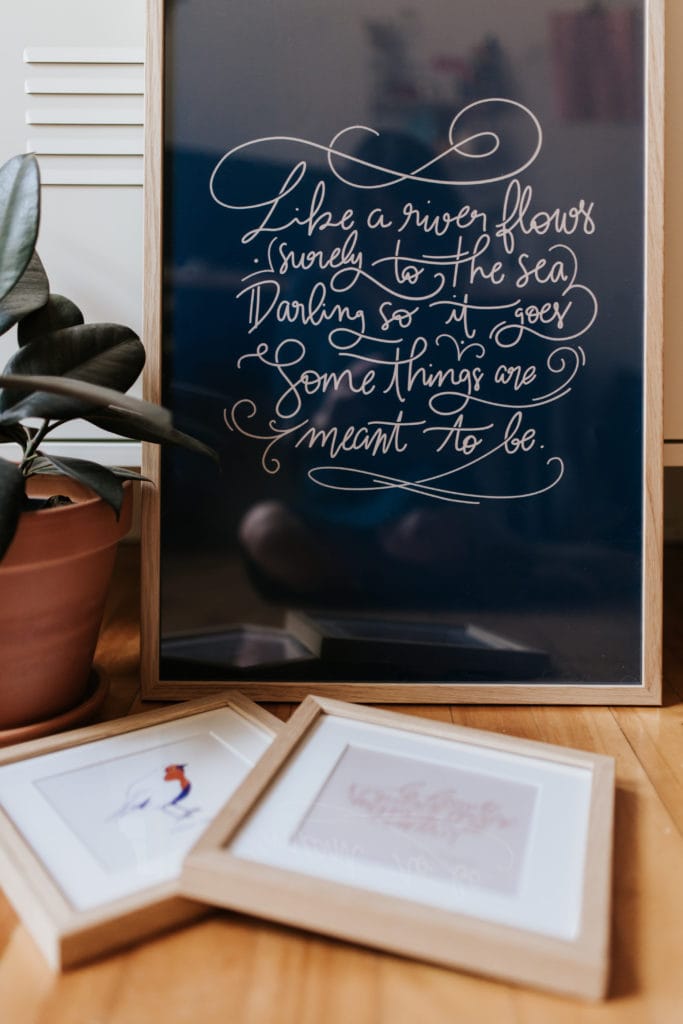 Like a river flows
surely to the sea
Darling so it goes
Some things are
meant to be.